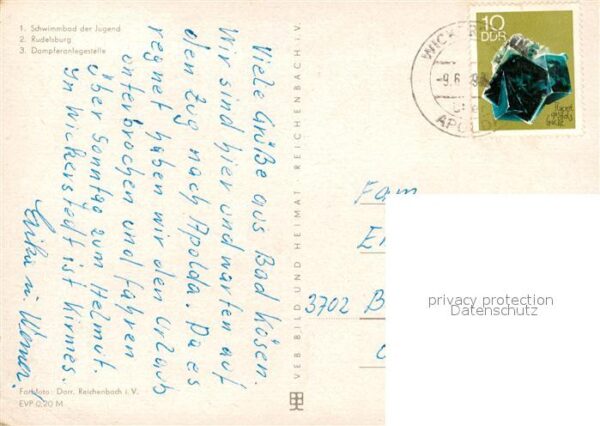 1. Schwimmbad der Jugend
2. Rudelsburg
3. Dampferanlegestelle
Viele Grüße aus Bad Kösen.
Wir sind hier und warten auf
den Zug nach Apolda. Da es
regnet haben wir den Urlaub
unterbrochen und fahren
über Sonntag zum Helmut.
In Wickerstedt ist Kirmes.
Erika u. Werner!
Farbfoto: Darr, Reichenbach i. V.
EVP 0,20 M
VEB BILD UND HEIMAT REICHENBACH i. V.
10
DDR
WICKER
-9.6.
APOL
Fam
3702 B
privacy protection
Datenschutz